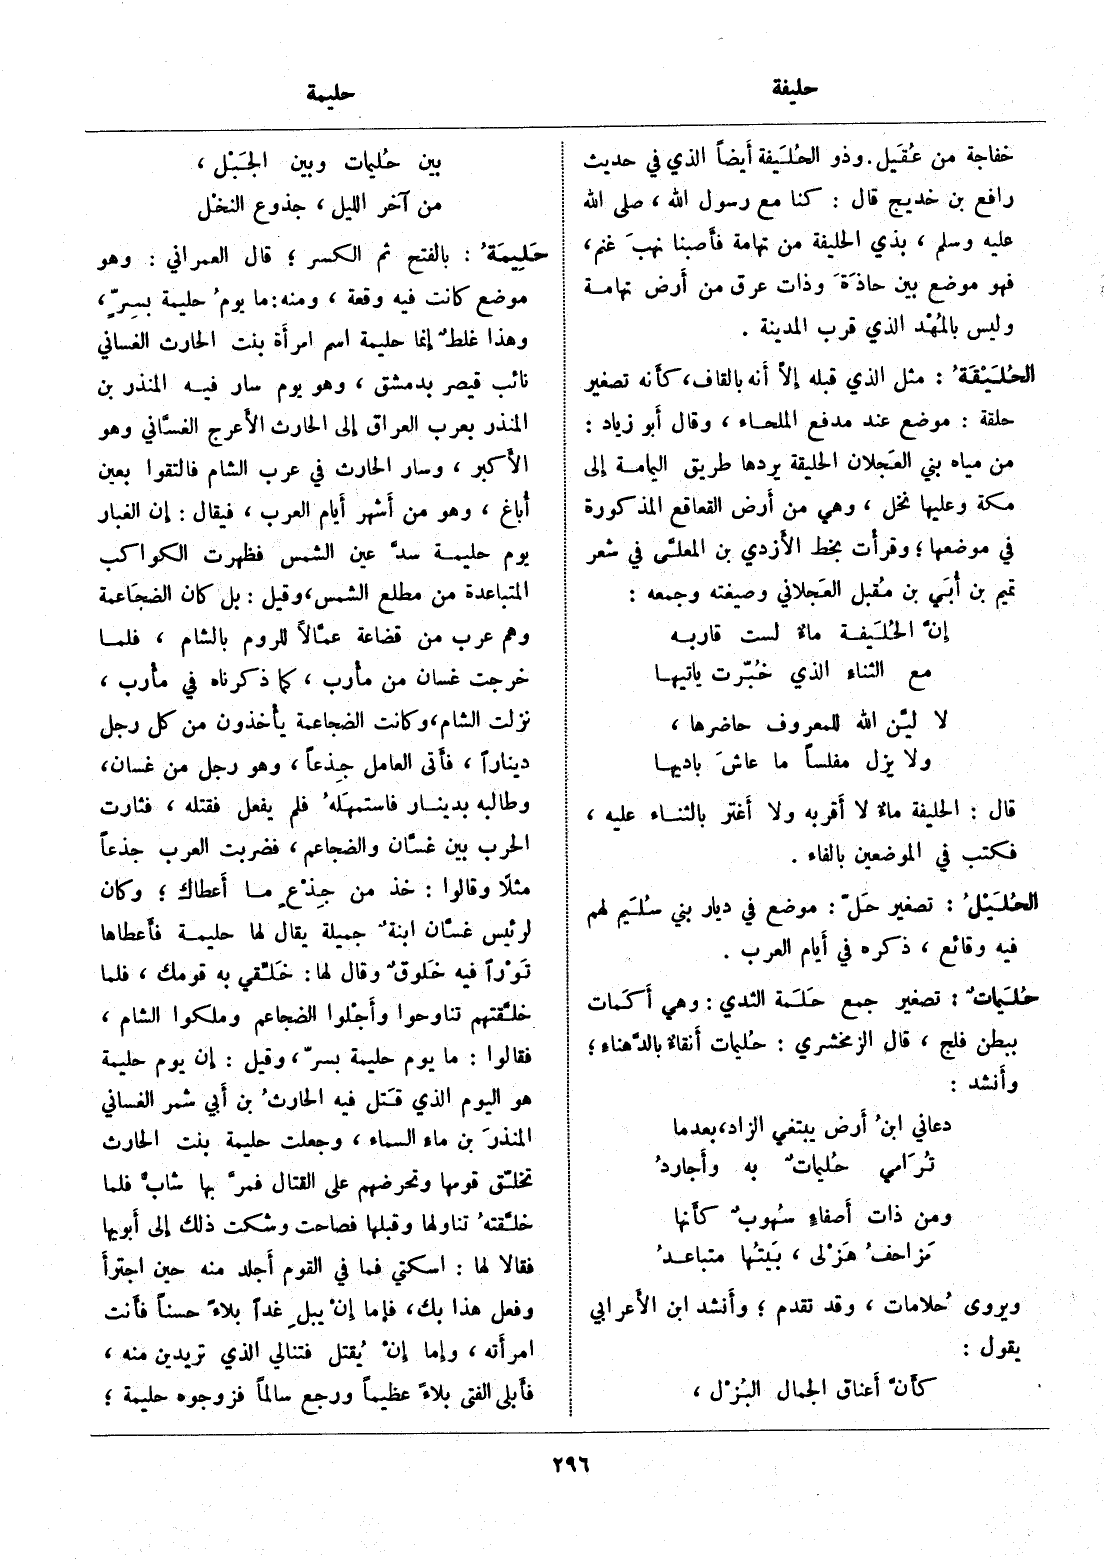 حليفة
حليمة
خفاجة من عُقَيل. وذو الحُلَيفة أيضاً الذي في حديث
رافع بن خديج قال : كنا مع رسول الله ، صلى الله
عليه وسلم ، بذي الحليفة من تهامة فأصبنا نهبَ غنم،
فهو موضع بين حاذَةَ وذات عرق من أرض تهامة
وليس بالمُهْد الذي قرب المدينة .
الحُلَيْقَةُ : مثل الذي قبله إلاّ أنه بالقاف، كأنه تصغير
حلقة : موضع عند مدفع الملحاء ، وقال أبو زياد :
من مياه بني العَجلان الحليقة يردها طريق اليامة إلى
مكة وعليها نخل ، وهي من أرض القعاقع المذكورة
في موضعها ؛ وقرأت بخط الأزدي بن المعلّى في شعر
تميم بن أُبَي بن مُقبل العَجلاني وصيغته وجمعه :
إنَّ الحُلَيفة ماءٌ لست قاربه
مع الثناء الذي خُبّرت ياتيها
لا ليّن الله للمعروف حاضرها ،
ولا يزل مفلساً ما عاشَ باديها
قال : الحليفة ماءٌ لا أقربه ولا أغتر بالثناء عليه ،
فكتب في الموضعين بالفاء .
الحُلَيْلُ : تصغير حَلّ : موضع في ديار بني سُلَيم لهم
فيه وقائع ، ذكره في أيام العرب .
حُلَيماتٌ : تصغير جمع حَلَمة الثدي : وهي أكَمات
ببطن فلج ، قال الزمخشري : حُليمات أنقاءٌ بالدَّهناء ؛
وأنشد :
دعاني ابنُ أرض يبتغي الزاد، بعدما
تُرَامي حُليماتٌ به وأجاردُ
ومن ذات أصفاءٍ سُهوبٌ كأنها
مَزاحفُ هَزْلى ، بَيتُها متباعدُ
ويروى حُلامات ، وقد تقدم ؛ وأنشد ابن الأعرابي
يقول :
كأنَّ أعناق الجمال البُزْل ،
بين حُليمات وبين الجَبْل ،
من آخر الليل ، جذوع النخل
حَلِيمَةُ : بالفتح ثم الكسر ؛ قال العمراني : وهو
موضع كانت فيه وقعة ، ومنه: ما يومُ حليمة بسِرّ،
وهذا غلطٌ إنما حليمة اسم امرأة بنت الحارث الغساني
نائب قيصر بدمشق ، وهو يوم سار فيه المنذر بن
المنذر بعرب العراق إلى الحارث الأعرج الغسّاني وهو
الأكبر ، وسار الحارث في عرب الشام فالتقوا بعين
أُباغ ، وهو من أشهر أيام العرب ، فيقال : إن الغبار
يوم حليمة سدَّ عين الشمس فظهرت الكواكب
المتباعدة من مطلع الشمس، وقيل : بل كان الضجاعمة
وهم عرب من قضاعة عمّالاً للروم بالشام ، فلما
خرجت غسان من مأرب ، كما ذكرناه في مأرب ،
نزلت الشام، وكانت الضجاعمة يأخذون من كل رجل
ديناراً ، فأتى العامل جِذعاً ، وهو رجل من غسان،
وطالبه بدينار فاستمهلَهُ فلم يفعل فقتله ، فثارت
الحرب بين غسّان والضجاعم ، فضربت العرب جذعاً
مثلًا وقالوا : خذ من جِذْعٍ ما أعطاك ؛ وكان
لرئيس غسّان ابنةٌ جميلة يقال لها حليمة فأعطاها
تَوْراً فيه خَلوقٌ وقال لها: خَلّقي به قومك ، فلما
خلّقتهم تناوحوا وأجْلوا الضجاعم وملكوا الشام ،
فقالوا : ما يوم حليمة بسرّ ، وقيل : إن يوم حليمة
هو اليوم الذي قتَل فيه الحارثُ بن أبي شمر الغساني
المنذرَ بن ماء السماء ، وجعلت حليمة بنت الحارث
تخلّق قومها وتحرضهم على القتال فمرَّ بها شابٌّ فلما
خلّقتهُ تناولها وقبلها فصاحت وشكت ذلك إلى أبويها
فقالا لها : اسكتي فما في القوم أجلد منه حين اجترأ
وفعل هذا بك، فإما إنْ يبلِ غداً بلاءً حسناً فأنت
امرأته ، وإما إنْ يُقتل فتنالي الذي تريدين منه ،
فأبلى الفتى بلاءً عظيماً ورجع سالماً فزوجوه حليمة ؛
٢٩٦